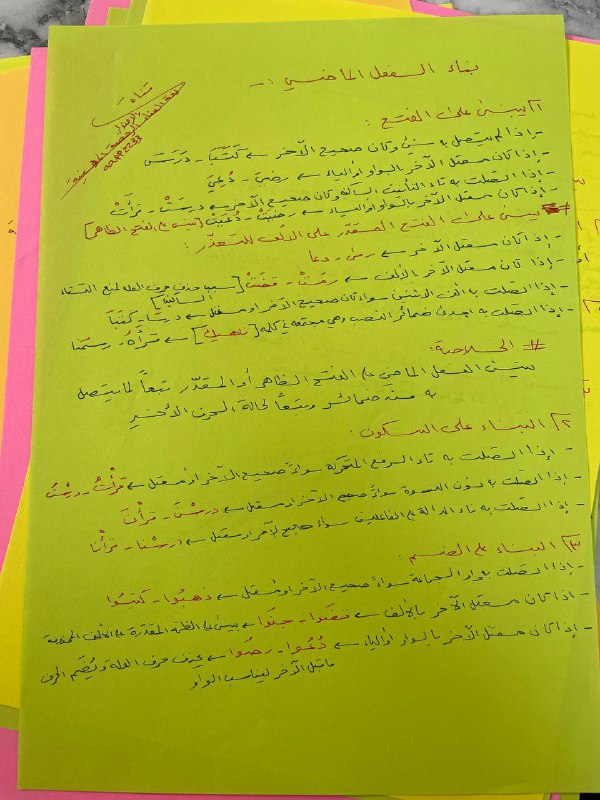 بناء الفعل الماضي :-
١) يبنى على الفتح :
- إذا لم يتصل به شيئ وكان صحيح الآخر ← كَتَبَ - دَرَسَ
- إذا كان معتل الآخر بالواو أو الياء ← رضيَ - دُعيَ
- إذا اتصلت به تاء التأنيث الساكنة وكان صحيح الآخر ← درستْ - قرأتْ
- إذا كان معتل الآخر بالواو أو الياء ← رضيتْ - دُعيتْ [يبنى على الفتح الظاهر]
# يبنى على الفتح المقدّر على الألف للتعذّر :
- إذا كان معتل الآخر ← رمى - دعا
- إذا كان معتل الآخر بالألف ← رمَتْ - قضَتْ [بسبب حذف حرف العلة لمنع التقاء الساكنين]
- إذا اتصلت به ألف الاثنين سواء كان صحيح الآخر أو معتل ← درسا - كتبَا
- إذا اتصلت به إحدى ضمائر النصب وهي مجتمعة في كلمة ← قرأَهُ - رسمنا
# الخلاصة :
يبنى الفعل الماضي على الفتح الظاهر أو المقدّر تبعاً لما يتصل
به من ضمائر وتبعاً لحالة الحرف الأخير
٢) البناء على السكون :
- إذا اتصلت به تاء الرفع المتحركة سواءً صحيح الآخر أو معتل ← قرأْتُ - درسْتُ
- إذا اتصلت به نون النسوة سواءً صحيح الآخر أو معتل ← درسْنَ - قرأْنَ
- إذا اتصلت به نا الدالة على الفاعلين سواءً صحيح الآخر أو معتل ← درسْنا - قرأْنا
٣) البناء على الضم :
- إذا اتصلت بواو الجماعة سواءً صحيح الآخر أو معتل ← ذهبُوا - كتبُوا
- إذا كان معتل الآخر بالألف ← يبنى على الضمة المقدّرة على الألف المحذوفة
- إذا كان معتل الآخر بالواو أو الياء ← دُعُوا - رضُوا ← يحذف حرف العلة ويُضَم الحرف
ما قبل الآخر ليناسب الواو